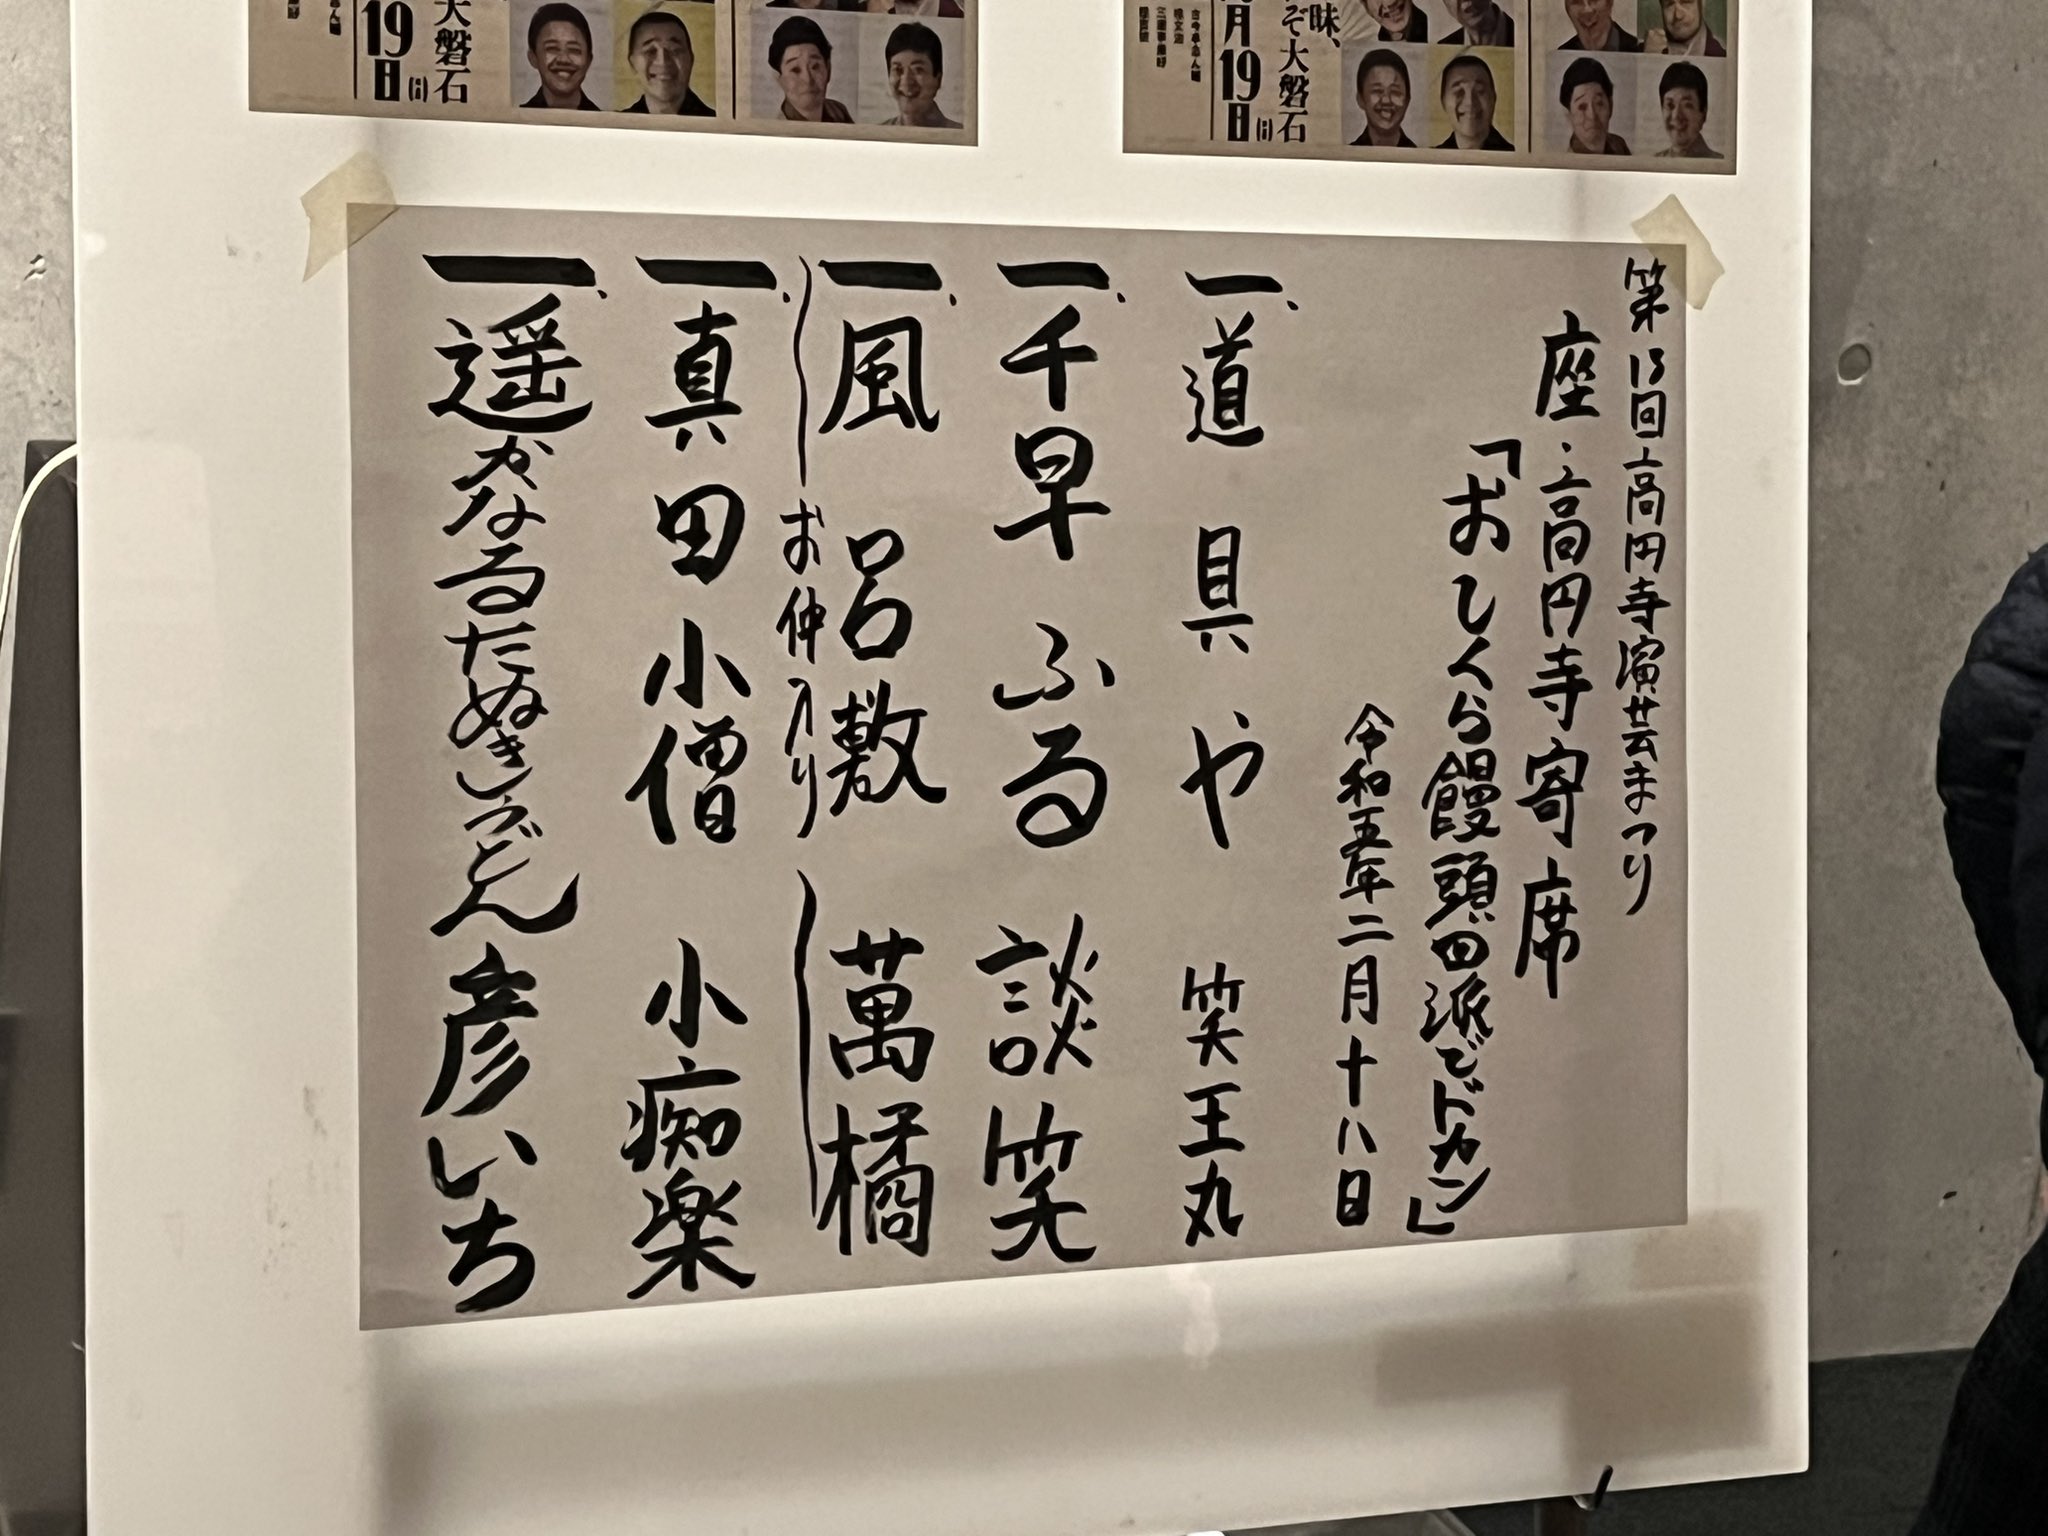 第13回高円寺演芸まつり
座・高円寺寄席
「おしくら饅頭四派でドカン」
令和五年二月十八日
一、道具や 笑王丸
一、千早ふる 談笑
一、風呂敷 萬橘
お仲入り
一、真田小僧 小痴楽
一、遥かなるたぬきうどん 彦いち
月19日
ぞ大磐石
19日
大磐石